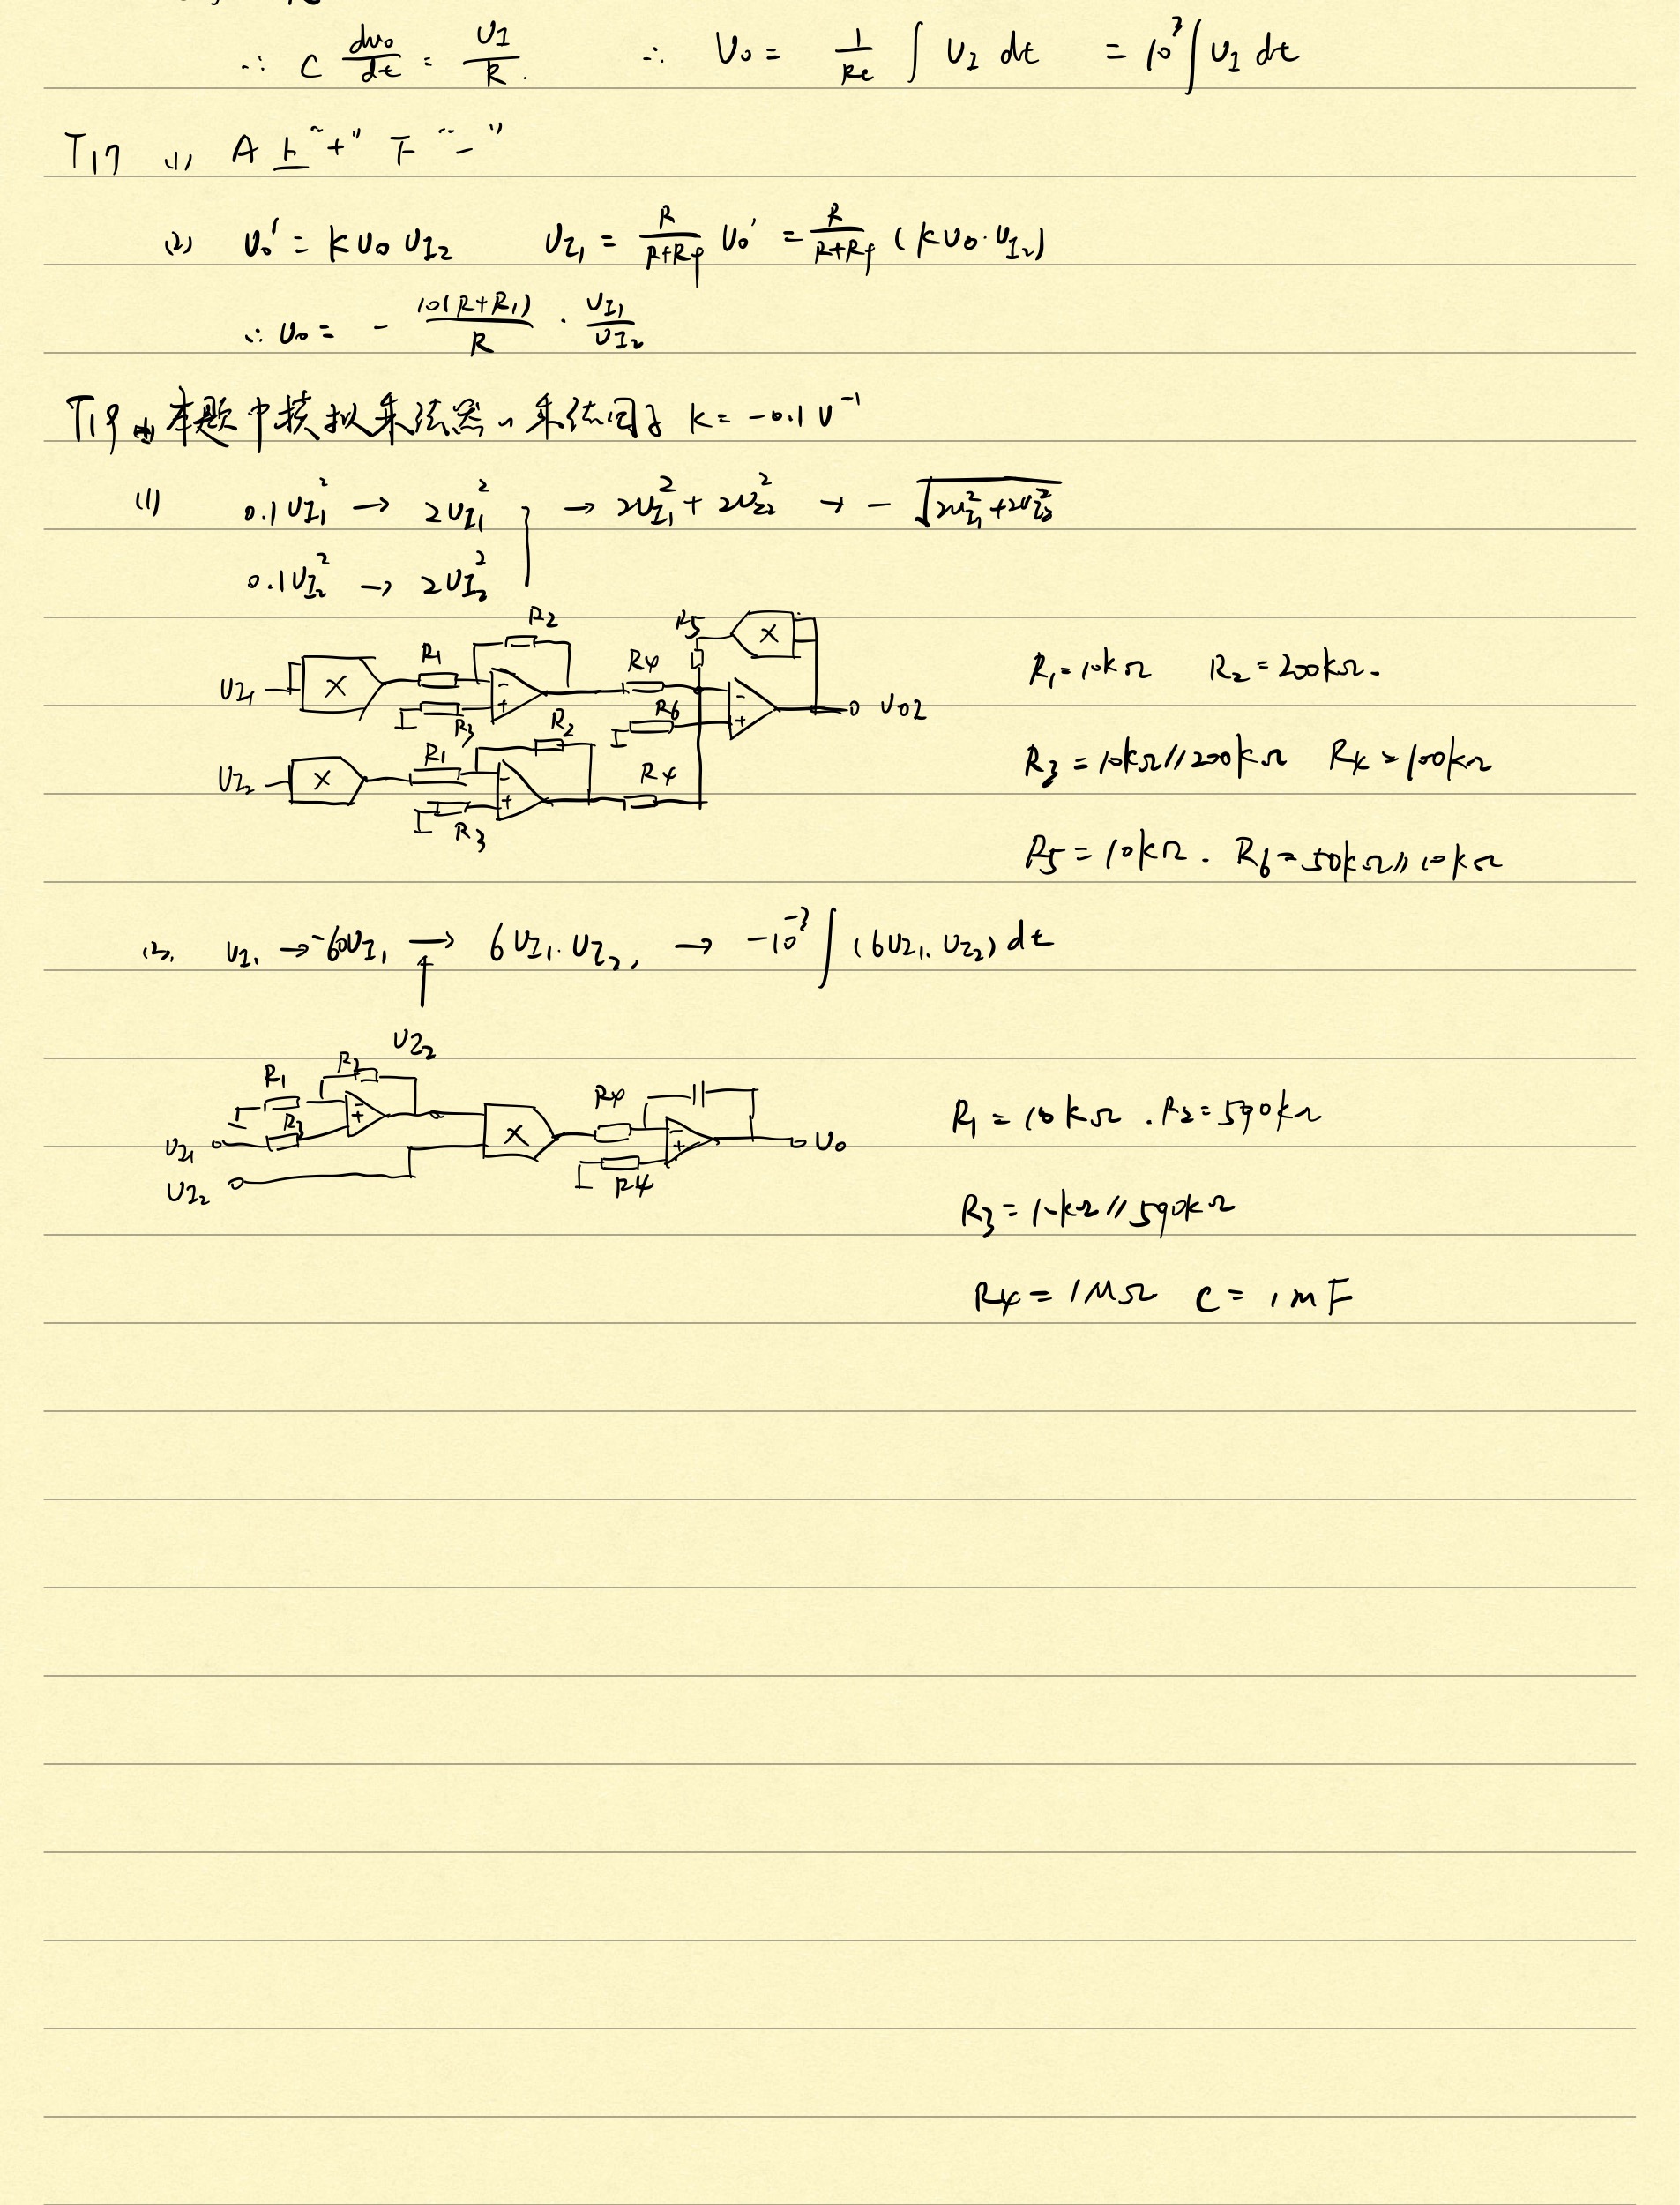 ∴ C duo/dt = UI/R. ∴ Uo = 1/Rc ∫ UI dt = 10³ ∫ UI dt
T17 (1) A 上“+” 下“-”
(2) Uo' = KUoUI2 UI1 = R/(R+Rf) Uo' = R/(R+Rf) (KUo·UI2)
∴ Uo = - 10(R+R1)/R · UI1/UI2
T19 本题中模拟乘法器的乘法因子 k = -0.1 V⁻¹
(1) 0.1UI1² → 2UI1² → 2UI1² + 2UI2² → - √(2UI1² + 2UI2²)
0.1UI2² → 2UI2²
R2 R5 X
UI1 X R1 - + R4 - + Uo2
R3 R6
UI2 X R1 R2 - + R4
R3
R1 = 10kΩ R2 = 200kΩ.
R3 = 10kΩ//200kΩ R4 = 100kΩ
R5 = 10kΩ. R6 = 50kΩ//10kΩ
(2). UI1 → -60UI1 → 6UI1·UI2, → -10⁻³ ∫ (6UI1·UI2) dt
UI2
R1 R2 R4
UI1 R3 - + X - + Uo
UI2 R4
R1 = 10kΩ. R2 = 590kΩ
R3 = 10kΩ//590kΩ
R4 = 1MΩ C = 1mF